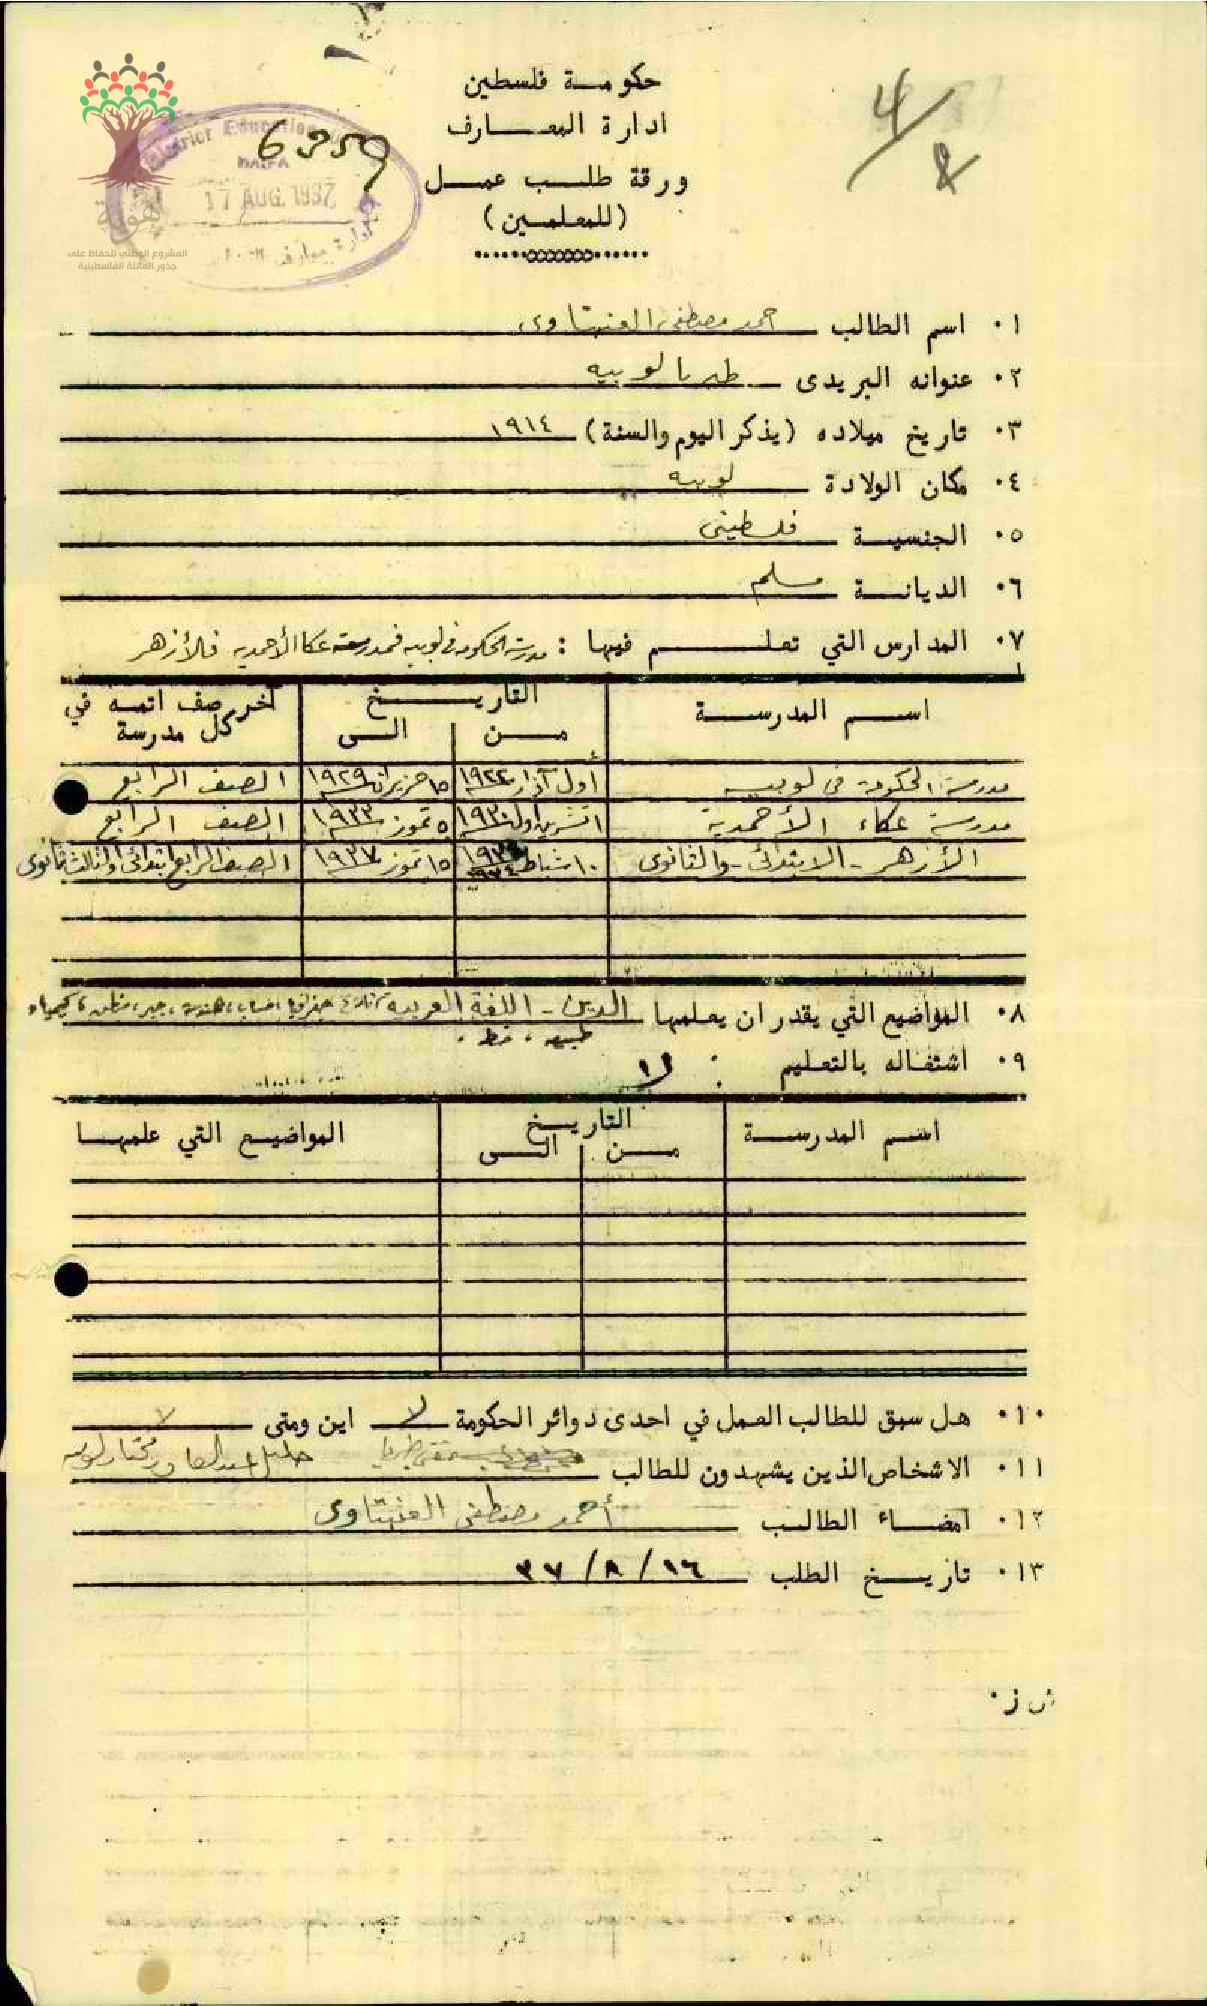 حكومة فلسطين
ادارة المعارف
ورقة طلب عمل
(للمعلمين)
4/8
District Education
HAIFA
17 AUG. 1937
هوية
المشروع الوطني للحفاظ على
جذور العائلة الفلسطينية
١٠ اسم الطالب احمد مصطفى العنبتاوي
٢٠ عنوانه البريدى طبريا لوبيه
٣٠ تاريخ ميلاده (يذكر اليوم والسنة) ١٩١٤
٤٠ مكان الولادة لوبيه
٥٠ الجنسية فلسطيني
٦٠ الديانة مسلم
٧٠ المدارس التي تعلم فيها : مدرسة الحكومة في لوبيه فمدرسة عكا الأحمدية فالأزهر
اسم المدرسة التاريخ آخر صف اتمه في كل مدرسة
من الى
مدرسة الحكومة في لوبيه أول آذار ١٩٢٤ ١٥ حزيران ١٩٢٩ الصف الرابع
مدرسة عكاء الأحمدية ١ تشرين اول ١٩٣٠ ٥ تموز ١٩٣٣ الصف الرابع
الأزهر - الابتدائي - والثانوى ١٠ شباط ١٩٣٤ ١٥ تموز ١٩٣٧ الصف الرابع ابتدائي والثالث ثانوى
٨٠ المواضيع التي يقدر ان يعلمها الدين - اللغة العربية جغرافيا، حساب، هندسة، جبر، منطق، كيمياء
طبيعه، خط.
٩٠ اشتغاله بالتعليم : لا
اسم المدرسة التاريخ المواضيع التي علمها
من الى
١٠٠ هل سبق للطالب العمل في احدى دوائر الحكومة لا اين ومتى لا
١١٠ الاشخاص الذين يشهدون للطالب خليل عبد القادر مختار لوبيه
١٢٠ امضاء الطالب أحمد مصطفى العنبتاوى
١٣٠ تاريخ الطلب ١٦/٨/٣٧
ش ز٠